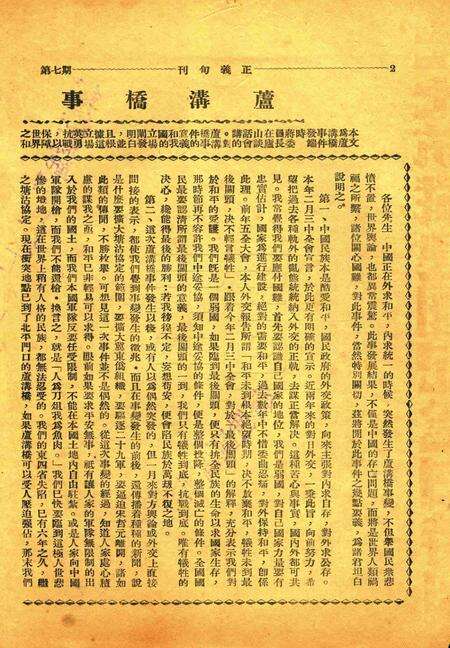 2
正義旬刊
第七期
蘆溝橋事
本文為蘆溝橋事件發端時蔣委員長在廬山談話會講的對蘆溝橋事件的意義和我國立場闡發明白並且根據這立場英勇抗戰以保障世界之和
各位先生,中國正在外求和平,內求統一的時候,突然發生了蘆溝橋事變,不但舉國民衆悲
憤不置,世界輿論,也都異常震驚。此事發展結果,不僅是中國的存亡問題,而將是世界人類禍
福之所繫,諸位關心國難,對此事件,當然特別關切,茲將關於此事件之幾點要義,為諸君坦白
說明之。
第一、中國民族本是酷愛和平,國民政府的外交政策,向來主張對內求自存,對外求公存。
本年二月三中全會宣言,於此更有明確的宣示。近兩年來的對日外交,一秉此旨,向前努力,希
望把過去各種軌外的亂態統統納入外交的正軌,去謀正當解決。這種苦心與事實,國內外都可共
見。我常覺得我們要應付國難,首先要認識自己國家的地位,我們是弱國,對自己國家力量要有
忠實估計,國家為進行建設,絕對的需要和平,過去數年中不惜委曲忍痛,對外保持和平,卽係
此理。前年五全大會,本人外交報告所謂「和平未到根本絕望時期,決不放棄和平,犧牲未到最
後關頭,決不輕言犧牲」。跟着今年二月三中全會,對於「最後關頭」的解釋,充分表示我們對
於和平的愛護。我們旣是一個弱國,如果臨到最後關頭,便只有拼全民族的生命以求國家生存,
那時節再不容許我們中途妥協,須知中途妥協的條件,便是整個投降,整個滅亡的條件。全國國
民最要認清所謂最後關頭的意義,最後關頭的一到,我們只有犧牲到底,抗戰到底。唯有犧牲的
決心,纔能博得最後的勝利;若我徬徨不定,妄想苟安,便會陷民族於萬刼不復之地。
第二、這次蘆溝橋事件發生以後,或有人以為偶然突發的,但一月來對方輿論或外交上直接
間接的表示,都使我們覺到事變發生的徵兆,而且在事變發生的前後,還傳播着種種的新聞,說
是什麽要擴大塘沽協定的範圍,要擴大冀東僞組織,要驅逐二十九軍,要逼迫宋哲元離開,諸如
此類的傳聞,不勝枚舉。可想見這一次事件並不是偶然的。從這次事變的經過,知道人家處心積
慮的謀我之亟,和平已非輕易可以求得。眼前如果要求平安無事,祇有讓人家的軍隊無限制的出
入於我們的國土,而我們本國軍隊反要忍受限制,不能在本國土地內自由駐紮。或是人家向中國
軍隊開槍,而我們不能還槍。換言之,就是「人為刀俎我為魚肉」。我們已要臨到這極人世悲
慘的境地,這在世界上稍有人格的民族,都無法忍受的。我們的東四省失陷,已有六年之久,繼
之塘沽協定。現在衝突地點已到了北平門口的蘆溝橋,如果蘆溝橋可以受人壓迫强佔,那末我們